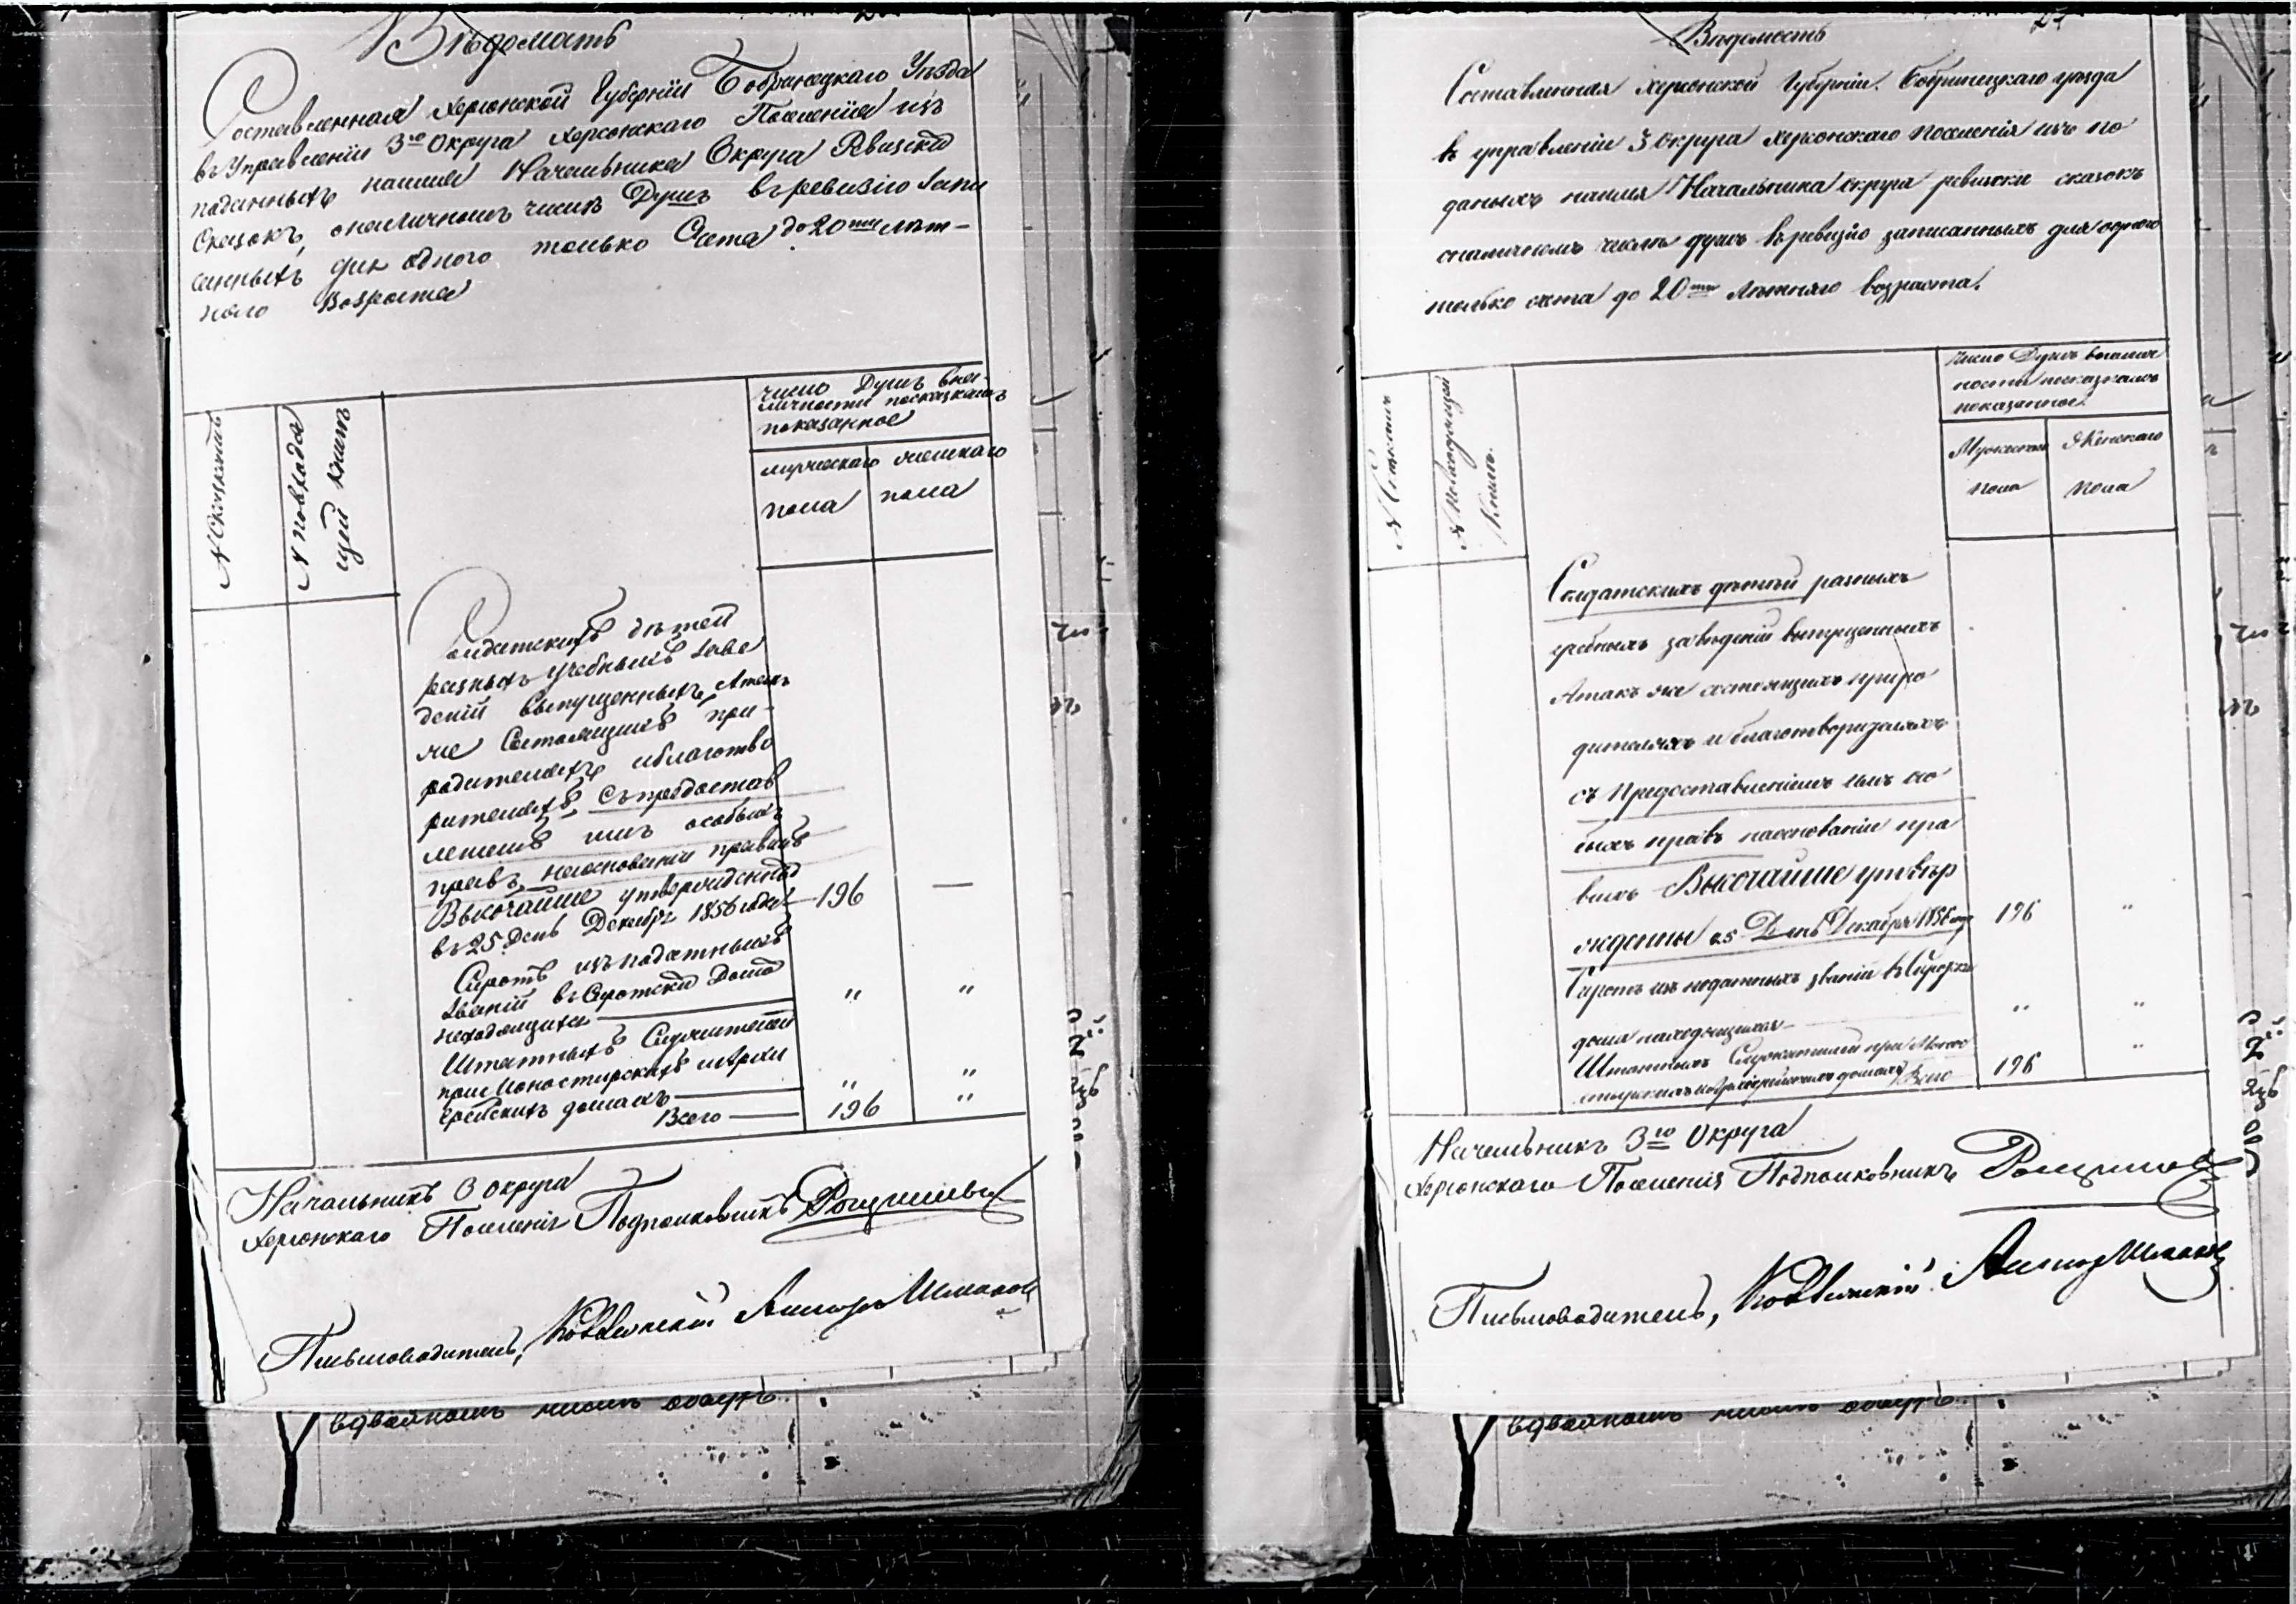 Вѣдомость
Составленная Херсонской Губерніи Бобринецкаго Уѣзда
въ Управленіи 3го Округа Херсонскаго Поселенія изъ
поданныхъ наимя Начальника Округа Ревизскихъ
Сказокъ, оналичномъ числѣ Душъ въ ревизію запи
санныхъ для одного только Счета до 20ти лѣт-
няго Возраста
N Сказкамъ
N Повходя
щей Книги
число Душъ внал-
ичности посказкамъ
показанное
мужескаго
пола
женскаго
пола
Солдатскихъ дѣтей
разныхъ учебныхъ заве
деній выпущенныхъ, Атакъ
же Состоящихъ при-
родителяхъ иблаготво
рителяхъ, съ предостав
леніемъ имъ особыхъ
правъ, наоснованіи правилъ
Высочайше утвержденныхъ
въ 25 День Декабря 1856 года — 196 —
Сиротъ изъ податныхъ
званій въ Сиротскихъ Домахъ
находящихся — " "
Штатныхъ Служителей
при Монастырскихъ иАрхи
ерейскихъ домахъ — " "
Всего — 196 "
Начальникъ 3 Округа
Херсонскаго Поселенія Подполковникъ
Письмоводитель,
вдвойномъ числѣ
Вѣдомость
Составленная Херсонской Губерніи. Бобринецкаго уѣзда
въ управленіи 3 округа Херсонскаго поселенія изъ по
даныхъ наимя Начальника округа ревизски сказокъ
оналичномъ числѣ душъ въревизію записанныхъ для одного
только счета до 20ти лѣтняго возраста.
N Сказкамъ
N Повходящей
Книги.
Число Душъ вналич
ности посказкамъ
показанное.
Мужескаго
пола
Женскаго
пола
Солдатскихъ дѣтей разныхъ
учебныхъ заведеній выпущенныхъ
Атакъ же состоящихъ приро
дителяхъ и благотворителяхъ
съ Предоставленіемъ имъ осо
быхъ правъ наоснованіи пра
вилъ Высочайше утвер
жденны 25 День Декабря 1856 года 196 "
Сиротъ изъ податныхъ званій въ Сиротск
дома находящихся — " "
Штатныхъ Служителей при Монас
тырскихъ иАрхіерейскихъ домахъ "
Всего 196
Начальникъ 3го Округа
Херсонскаго Поселенія Подполковникъ
Письмоводитель,
вдвойномъ числѣ